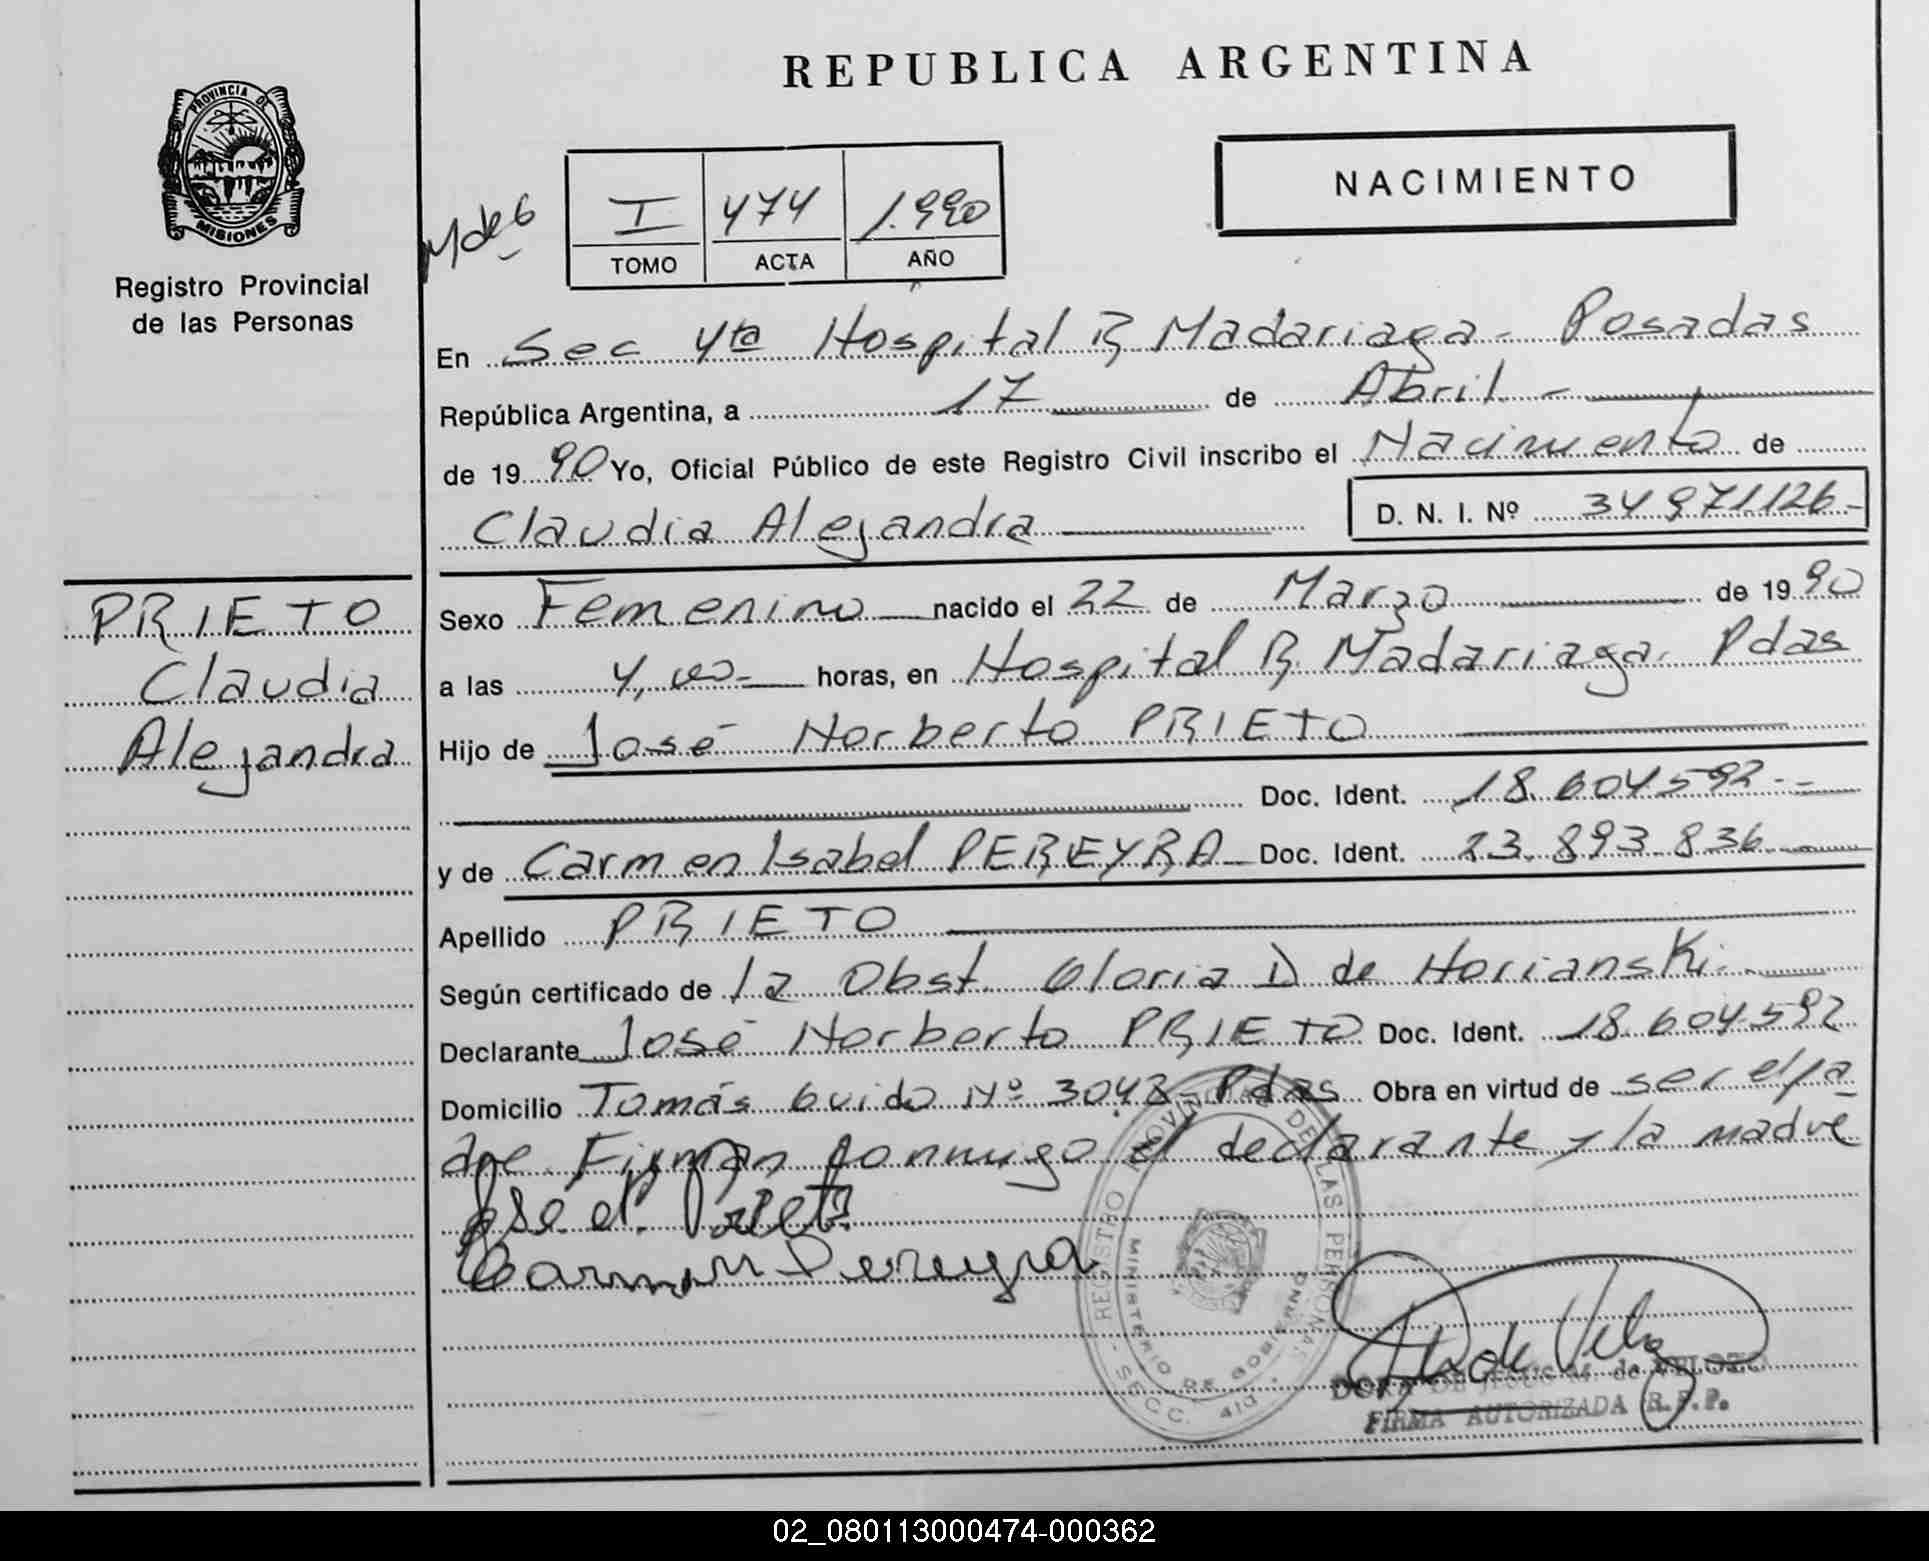 REPUBLICA ARGENTINA
PROVINCIA DE
MISIONES
Registro Provincial
de las Personas
NACIMIENTO
I 474 1.990
TOMO ACTA AÑO
En Sec 4ta Hospital R Madariaga - Posadas
República Argentina, a 17 de Abril -
de 19 90 Yo, Oficial Público de este Registro Civil inscribo el Nacimiento de
Claudia Alejandra D. N. I. Nº 34971126-
PRIETO
Claudia
Alejandra
Sexo Femenino nacido el 22 de Marzo de 19 90
a las 4,00- horas, en Hospital R. Madariaga. Pdas
Hijo de José Norberto PRIETO
Doc. Ident. 18.604592.-
y de Carmen Isabel PEREYRA Doc. Ident. 23.893.836
Apellido PRIETO
Según certificado de la Obst. Gloria D de Horianski.
Declarante José Norberto PRIETO Doc. Ident. 18.604.592
Domicilio Tomás Guido Nº 3048- Pdas Obra en virtud de ser el pa
dre. Firman conmigo el declarante y la madre
José N. Prieto
Carmen Pereyra
REGISTRO PROVINCIAL DE LAS PERSONAS
MINISTERIO DE GOBIERNO
- SECC. 4ta -
DORA DE JESUS M. de VELOZO
FIRMA AUTORIZADA R.P.P.
02_080113000474-000362